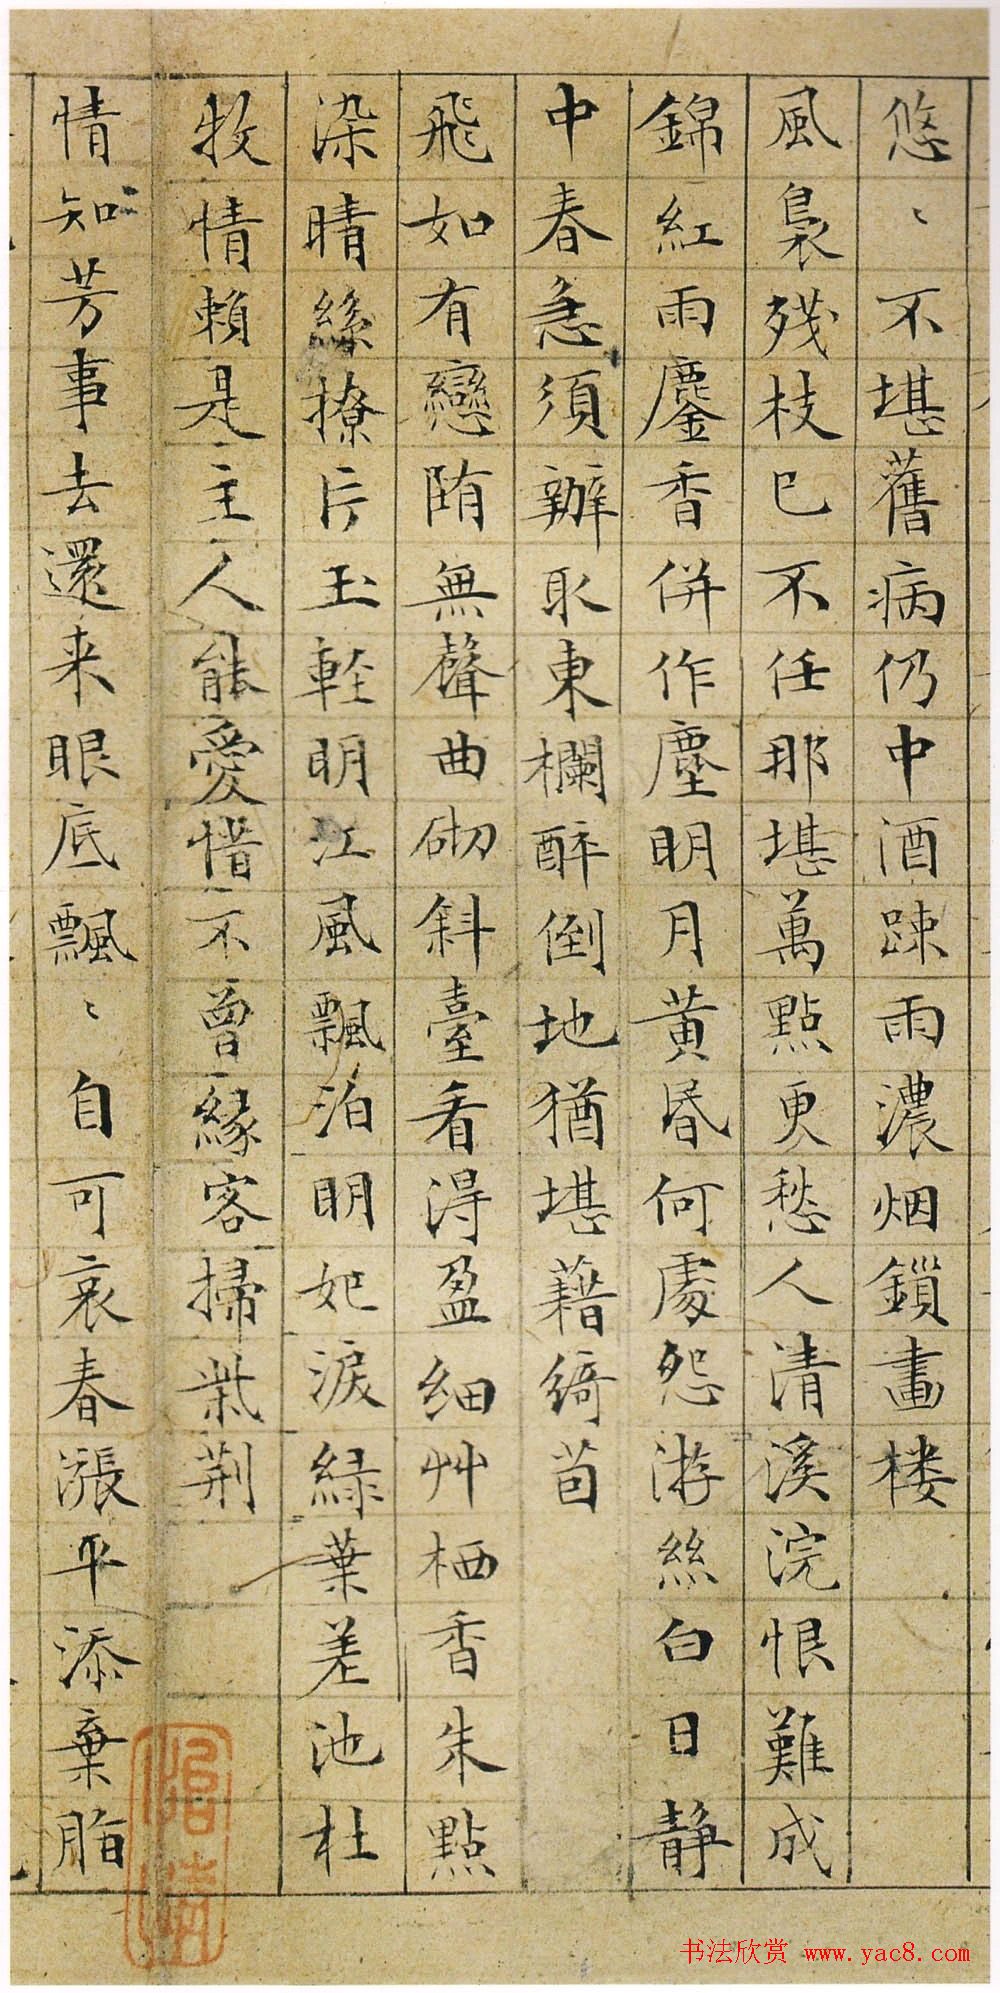 悠〻不堪舊病仍中酒踈雨濃烟鎖畫楼
風裊残枝已不任那堪萬點更愁人清溪浣恨難成
錦紅雨鏖香併作塵明月黄昏何處怨游絲白日静
中春急須辦取東欄醉倒地猶堪藉綺茵
飛如有戀隋無聲曲砌斜臺看得盈細艸栖香朱點
染晴絲撩片玉輕明江風飄泊明妃淚緑葉差池杜
牧情賴是主人能愛惜不曾緣客掃柴荆
情知芳事去還来眼底飄〻自可哀春漲平添棄脂
书法欣赏 www.yac8.com